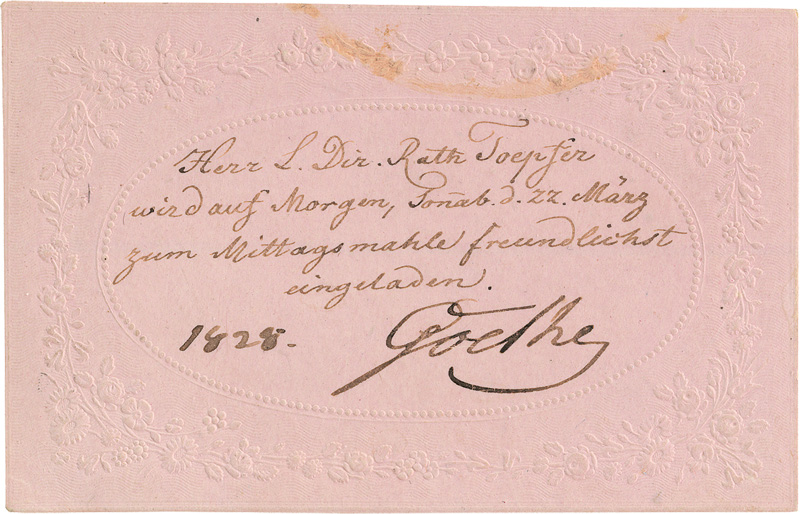 Herr L. Dir. Rath Toepfer
wird auf Morgen, Sonab. d. 22. März
zum Mittagsmahle freundlichst
eingeladen.
1828. Goethe